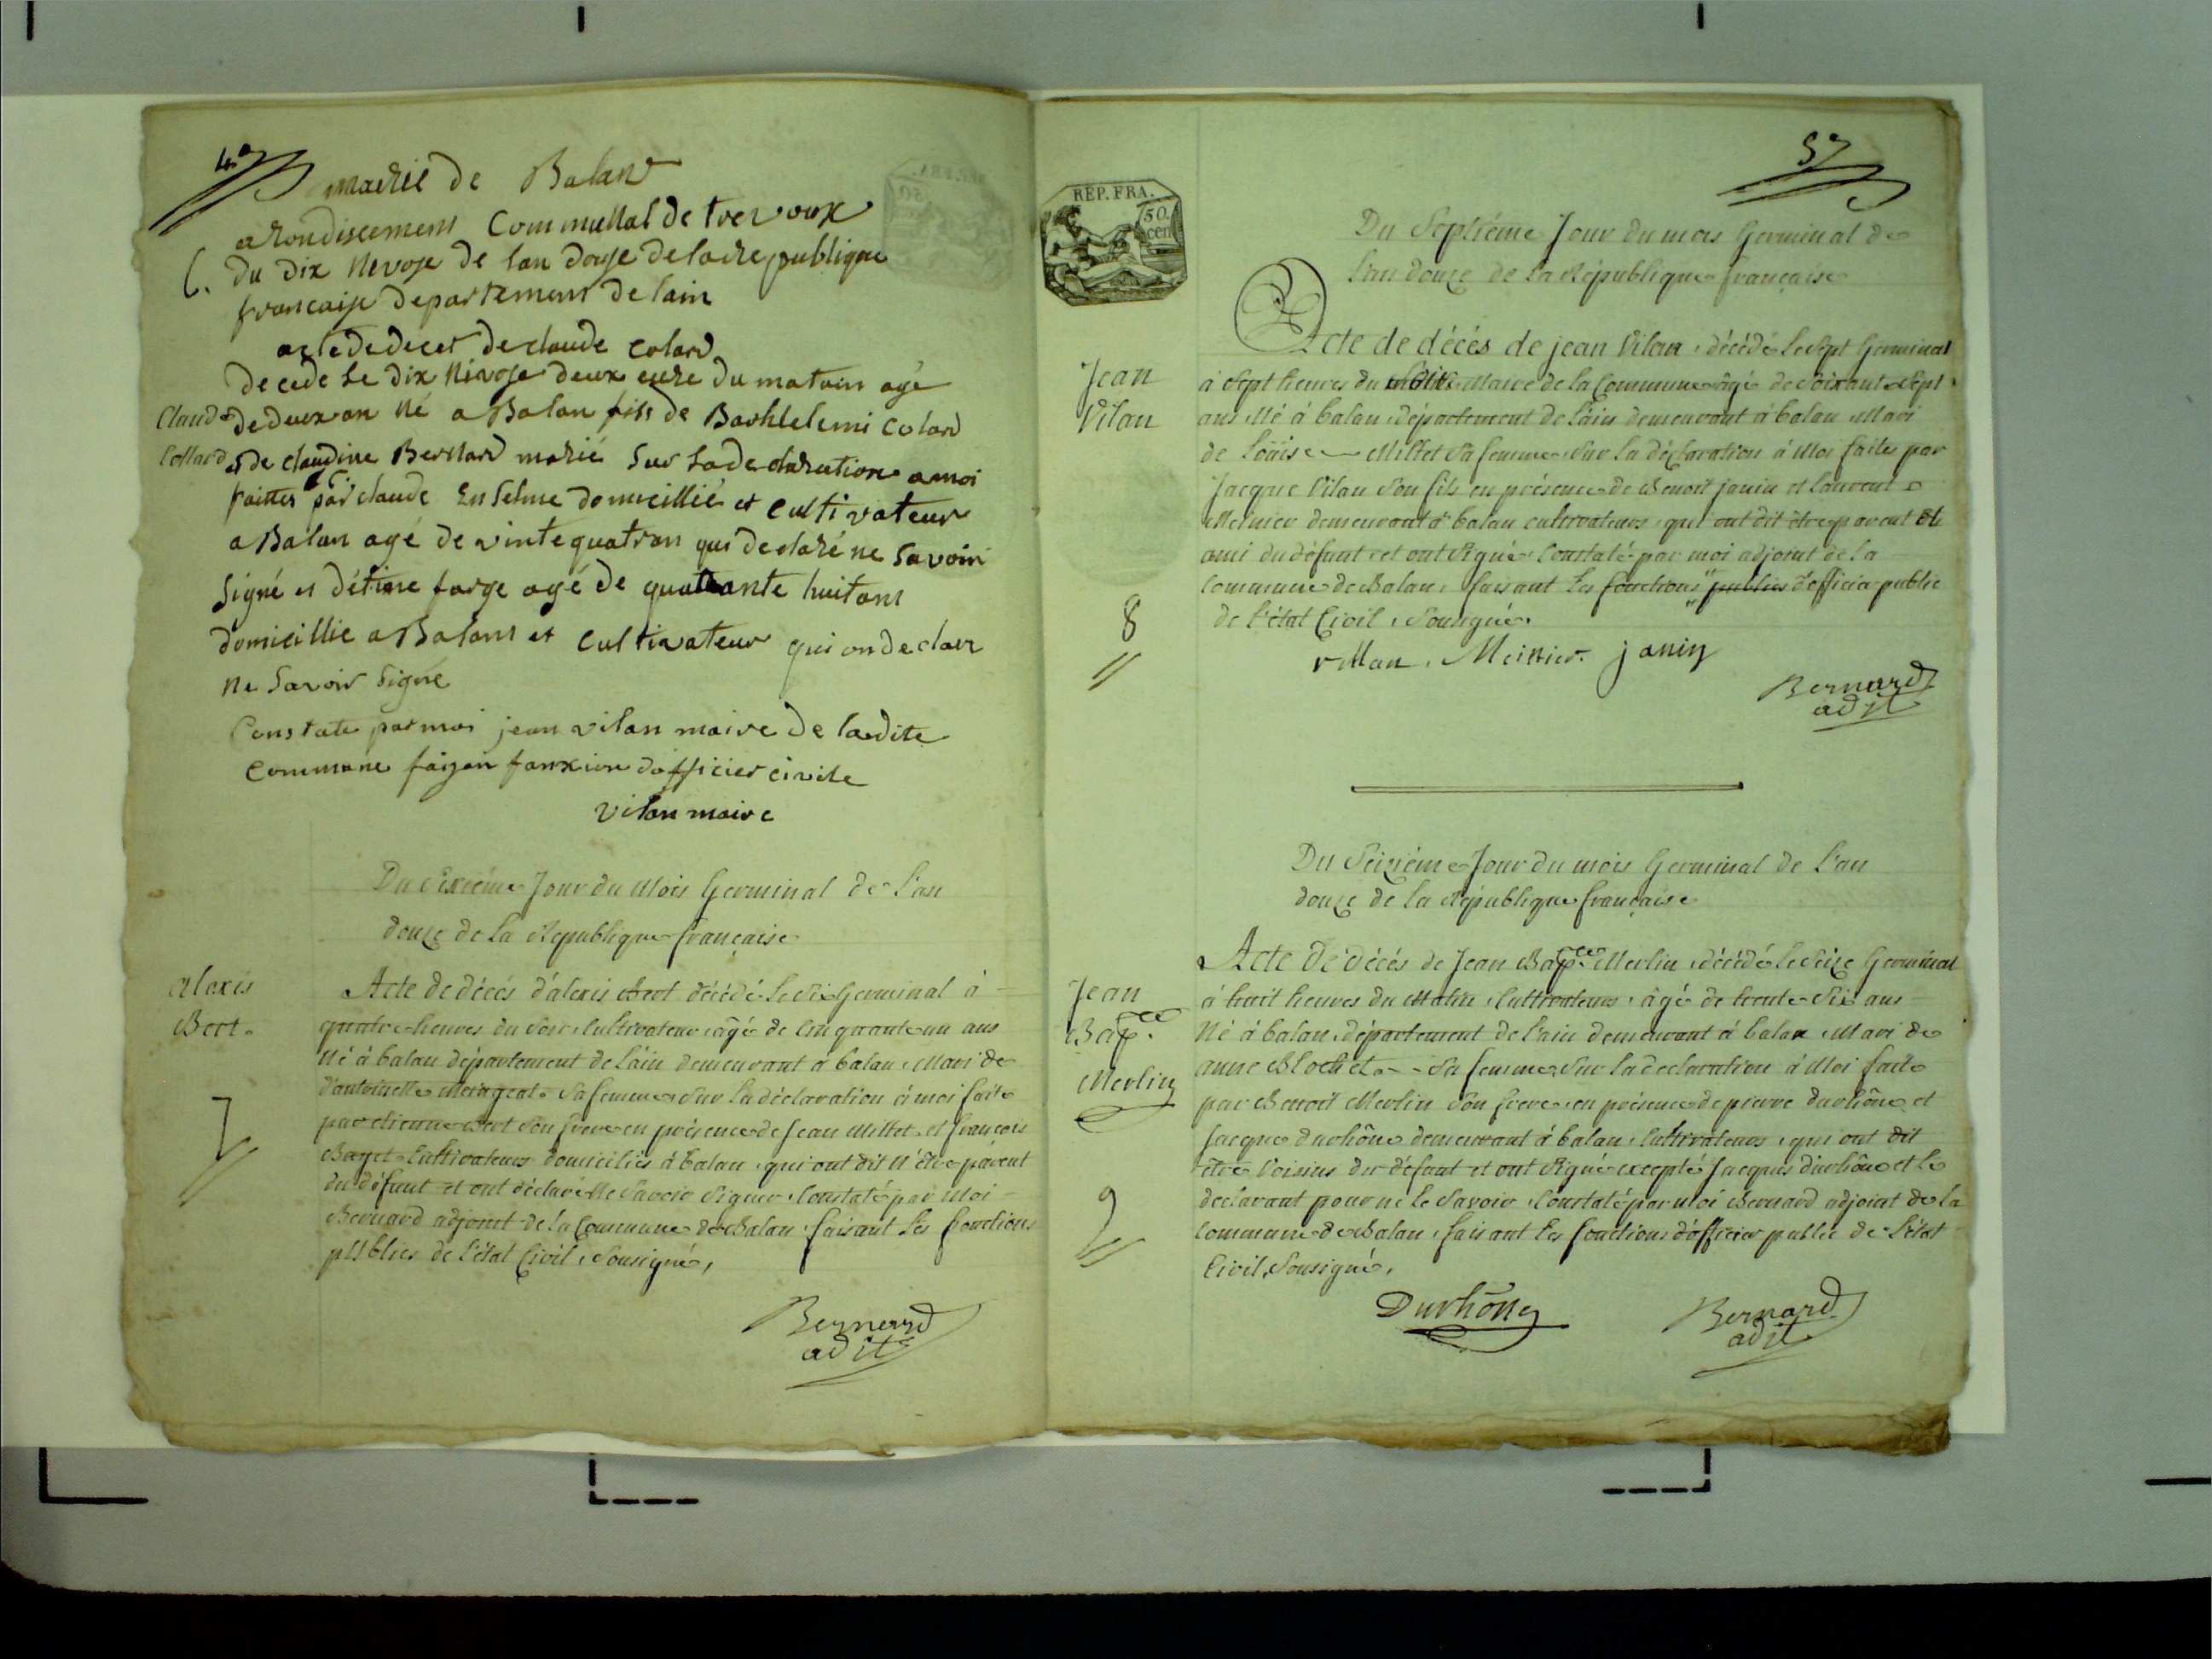 4e
mairié de Balan
arondiscement Communal de trevoux
6. du dix nivose de lan douze de la republique
francaise departement de lain
acte de deces de claude colard
decede le dix nivose deux eure du matoin agé
Claude de deux an né a Balan fils de Barhtelemi colard
Collard et de claudine Bernard marié sur la declaration a moi
faittes par claude Enselme domicillié et cultivateur
a Balan agé de vintequatran qui declaré ne savoir
signé et détiene farge agé de quarante huitans
domicillie a Balans et cultivateur qui on declair
ne savoir signé
Constate par moi jean vilan maire de ladite
commune faizan fonxion dofficier civile
vilan maire
Du Sixiéme Jour du Mois Germinal de l'an
douze de la République française
Alexis
Bert.
7
Acte de décés d'alexis Bert décédé le Six Germinal à
quatre heures du Soir, Cultivateur, âgé de Cinquante un ans
Né à balan département de l'ain demeurant à balan, Mari de
d'antoinette Sa femme, Sur la déclaration à moi faite
par etienne Bert Son frere en présence de Jean Millet et françois
Bayet Cultivateurs domiciliés à balan, qui ont dit N'être parent
du défunt et ont déclaré Ne Savoir Signer, Constaté par Moi
Bernard adjoint de la Commune de Balan, faisant les fonctions
publics de l'état Civil, Sousigné,
Bernard
adjt
57
REP. FRA.
50.
cen
Du Septiéme Jour du mois Germinal de
l'an douze de la République française
Jean
Vilan
8
Acte de décés de jean Vilan, décédé le Sept Germinal
à Sept heures du Maire de la Commune âgé de Soixante Sept
ans, Né à balan, département de l'ain demeurant à balan, Mari
de Loüise Millet Sa femme, Sur la déclaration à Moi faite par
Jacque Vilan Son fils en présence de Benoit janin et laurent
Meinier demeurant à balan cultivateurs, qui ont dit être parent et
ami du défunt et ont Signé, Constaté par moi adjoint de la
Commune de Balan, faisant les fonctions publics d'officier public
de l'état Civil, Sousigné.
villan. Meinier. janin
Bernard
adjt
Du Seiziéme Jour du mois Germinal de l'an
douze de la République française
Jean
Bapte
Merlin
9
Acte de décés de Jean Bapte Merlin, décédé le Seize Germinal
à huit heures du Matin, Cultivateur, âgé de trente Six ans
Né à balan, département de l'ain demeurant à balan, Mari de
anne Blochet Sa femme, Sur la declaration à Moi faite
par Benoit Merlin Son frere, en présence de pierre durhône et
Jacque durhône demeurant à balan, Cultivateurs, qui ont dit
être Voisins du défunt et ont Signé excepté Jacques durhône et le
declarant pour ne le Savoir, Constaté par moi Bernard adjoint de la
Commune de Balan, faisant les fonctions d'officier public de l'état
Civil, Sousigné,
Durhône
Bernard
adjt